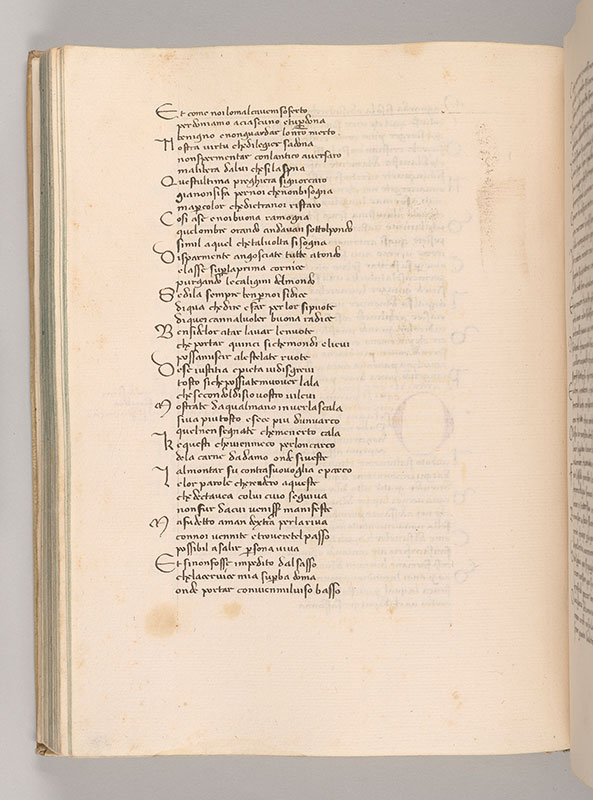 Et come noi lomal cavem soferto
perdoniamo aciascuno etu pdona
benigno enonguardar lonro merto
Nostra virtu chedilegier sadona
nonspermentar conlantico aversaro
malibera dalui chesi laspna
Questultima preghiera signorcaro
gianonsi fa pernoi chenonbisogna
maper color chedietranoi restaro
Cosi ase enoi buona ramogna
quelombre orando andavan sottolpondo
simil aquel chetalvolta si sogna
Disparmente angosciate tutte atondo
elasse su plaprima cornice
purgando lecaligini delmondo
Sedila sempre ben pnoi sidice
diqua chedire efar perlor sipuote
daquei cannalvoler buona radice
Bensidelor atar lavar lenote
che portar quinci sichemondi elievi
possanuscir alestelate ruote
Dese iustitia epieta vidisgrevi
tosto sichepossiatemuover lala
chesecondoldisio vostro vilevi
Mostrate daqualmano inverlascala
siva piutosto esece piu dunvarco
quelnensegnate chemenerto cala
Kequesti chevienmeco perloncarco
dela carne dadamo onde siveste
almontar su contrasuovoglia eparco
Lelor parole cherendero aqueste
chedectavea colui cuio seguiva
nonfur dacui veniss manifeste
Mafudetto aman dextra perlariva
connoi venite etroveretel passo
possibil asalir psona viva
Et sinonfosse impedito dalsasso
chelacervice mia supba doma
onde portar convienmilviso basso